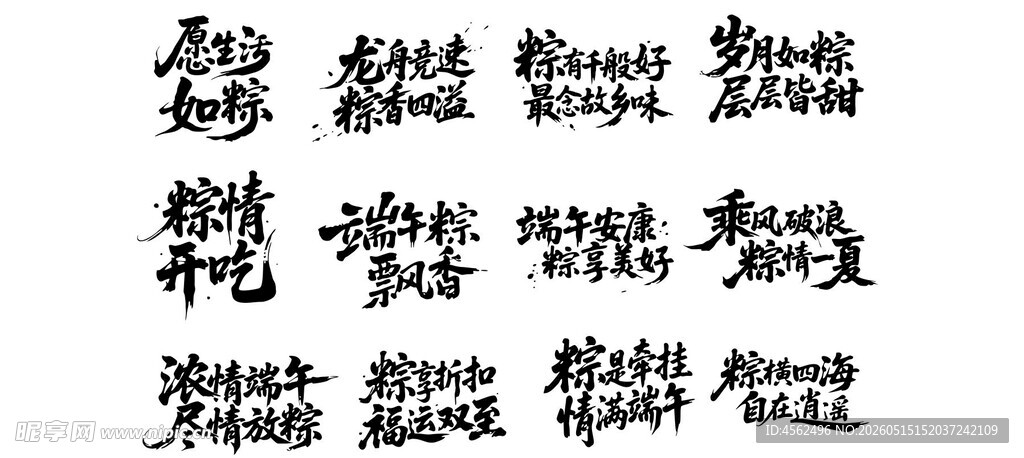 愿生活
如粽
龙舟竞速
粽香四溢
粽有千般好
最念故乡味
岁月如粽
层层皆甜
粽情
开吃
端午粽
飘香
端午安康
粽享美好
乘风破浪
粽情一夏
浓情端午
尽情放粽
粽享折扣
福运双至
粽是牵挂
情满端午
粽横四海
自在逍遥
昵享网 www.nipic.cn
ID:4562496 NO:20260515152037242109